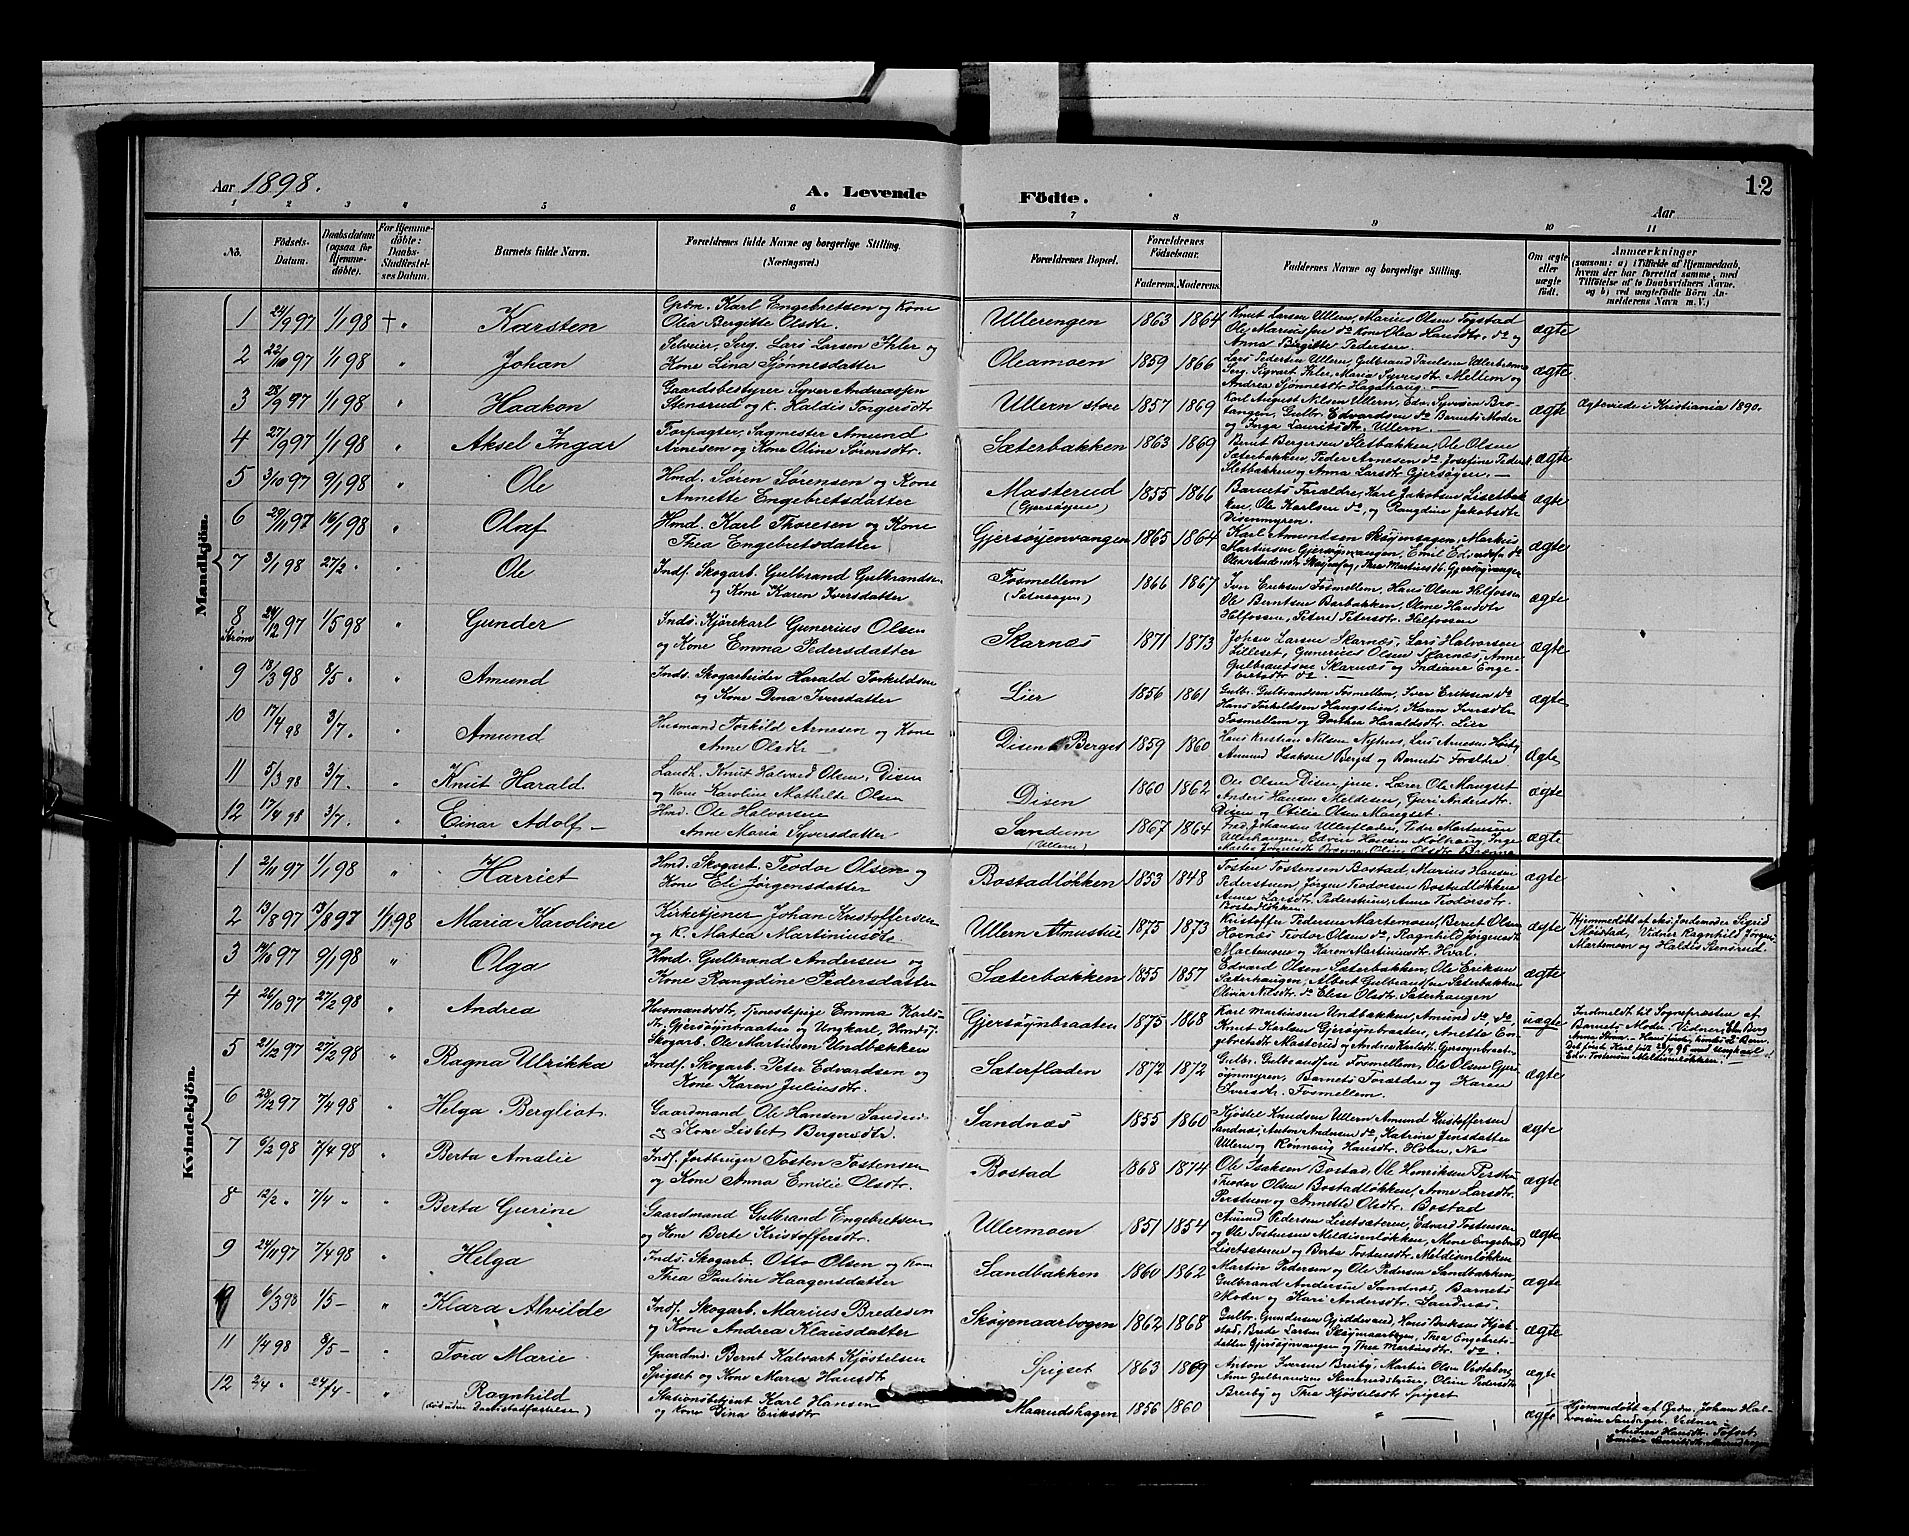 Aar 1898.
A. Levende Födte.
12
Aar
1 2 3 4 5 6 7 8 9 10 11
No.
Födsels-Datum.
Daabsdatum (ogsaa for Hjemmedöbte).
For Hjemmedöbte: Daabs-Stadfæstelses Datum.
Barnets fulde Navn.
Forældrenes fulde Navne og borgerlige Stilling. (Næringsvei.)
Forældrenes Bopæl.
Forældrenes Födselsaar.
Faderens. Moderens.
Faddernes Navne og borgerlige Stilling.
Om ægte eller uægte födt.
Anmærkninger
(saasom: a) i Tilfælde af Hjemmedaab, hvem der har forrettet samme, med Tilföielse af to Daabsvidners Navne, og b) ved uægtefödte Börn Anmelderens Navn m. V.)
Mandkjön.
1 24/9 97 1/1 98 Karsten Gdm. Karl Engebretsen og Kone Olea Bergitte Olsdtr. Ullerengen 1863 1864 Knut Larsen Ullern, Marius Olsen Togstad Ole Mariussen do Kone Olea Hansdtr. do og Anna Birgitte Pedersen. ægte
2 22/10 97 1/1 98 Johan Selveier, Serg. Lars Larsen Ihler og Kone Lina Sjønnesdatter Oleamoen 1859 1866 Lars Pedersen Ullern, Gulbrand Paulsen Serg. Sigvart Ihler, Maria Syversdtr. Mellem og Andrea Sjønnesdtr. Hagahaug. ægte.
3 28/9 97 1/1 98 Haakon Gaardsbestyrer Syver Andreassen Stensrud og K. Haldis Torgersdtr. Ullern store 1857 1869 Karl August Nilsen Ullern, Edv. Syversen Brotangen, Gulbr. Edvardsen do Barnets Moder og Inga Lauritsdtr. Ullern. ægte Ægteviede i Kristiania 1890.
4 27/9 97 1/1 98 Aksel Ingar Forpagter, Sagmester Amund Arnesen og Kone Oline Sørensdtr. Sæterbakken 1863 1869 Bernt Bergersen Sletbakken, Ole Olsen Sæterbakken, Peder Arnesen do, Josefine Pedersd. Sletbakken og Anna Larsdtr Gjersøyen. ægte
5 3/10 97 9/1 98 Ole Hmd. Søren Sørensen og Kone Annette Engebretsdatter Masterud (Gjersøyen) 1855 1866 Barnets Forældre, Karl Jakobsen Lisetbakken, Ole Karlsen do, og Rangdine Jakobsdtr Disenmyren. ægte
6 29/11 97 16/1 98 Olaf Hmd. Karl Thoresen og Kone Thea Engebretsdatter Gjersøyenvangen 1865 1864 Karl Amundsen Skøyenhagen, Markus Martinsen Gjersøynvangen, Emil Edvardsen do ægte
7 3/1 98 27/2 Ole Inds. Skogarb. Gulbrand Gulbrandsen og Kone Karen Iversdatter Fosmellem 1866 1867 Iver Eriksen Fosmellem, Hans Olsen Helfossen Ole Berntsen Barbakken, Oline Hansdtr Helfossen, Petra Petersdtr. Helfossen ægte
8 24/12 97 1/5 98 Gunder Inds. Kjørekarl Gunerius Olsen og Kone Emma Pedersdatter Skarnæs 1871 1873 Johan Larsen Skarnæs, Lars Halvorsen Lilleset, Gunerius Olsen Skarnæs, Anne Gulbrandsen Skarnæs og Indiane Engebretsdtr do. ægte
9 18/3 98 8/5 Amund Inds. Skogarbeider Harald Torkildsen og Kone Dina Iversdatter Lier 1856 1861 Gulbr. Gulbrandsen Fosmellem, Iver Eriksen do Hans Torkildsen Haugstien, Karen Iversdtr Fosmellem og Dorthea Haraldsdtr. Lier ægte
10 17/4 98 3/7. Amund Husmand Torkild Arnesen og Kone Anne Olsdtr Disen Berget 1859 1860 Hans Kristian Nilsen Nyhus, Lars Arnesen Amund Isaksen Berget og Barnets Forældre ægte
11 5/3 98 3/7. Knut Harald Landh. Knut Halvard Olsen, Disen og Kone Karoline Mathilde Olsen Disen 1860 1862 Ole Olsen Disen jun. Lærer Ole Mangset Anders Hansen Meldisen, Guri Andersdtr. Disen og Otilie Olsen Mangset. ægte
12 17/4 98 3/7. Einar Adolf Hmd. Ole Halvorsen Anne Maria Syversdatter Sandum (Ullern) 1867 1864 Fred. Johansen Ullerfladen, Peder Martinsen Ullerhaugen, Edvin Hansen Molhaug, Inge ægte
Kvindekjön.
1 2/11 97 1/1 98 Harriet Hmd. Skogarb. Teodor Olsen og Kone Eli Jørgensdatter Bostadløkken 1853 1848 Tosten Tostensen Bostad, Marius Hansen Pederstuen, Jørgen Teodorsen Bostadløkken Anne Larsdtr. Pederstuen, Anne Teodorsdtr. Bostadløkken. ægte
2 13/8 97 13/8 97 1/1 98 Maria Karoline Kirketjener Johan Kristoffersen og K. Matea Martiniusdtr. Ullern Almustue 1875 1873 Kristoffer Pedersen Martemoen, Bernt Olsen Hornæs Teodor Olsen do, Ragnhild Jørgensdtr Martemoen og Karen Martiniusdtr. Hval. ægte Hjemmedøbt af Aks. Jordemoder Sigrid Moistad, Vidner Ragnhild Jørgens. Martemoen og Haldis Stensrud.
3 14/10 97 9/1 98 Olga Hmd. Gulbrand Andersen og Kone Rangdine Pedersdatter Sæterbakken 1855 1857 Edvard Olsen Sæterbakken, Ole Eriksen Sæterhaugen, Albert Gulbrandsen Sæterbakken Olivia Nilsdtr. do Elise Olsdtr. Sæterhaugen ægte
4 26/10 97 27/2 98 Andrea Husmandsdtr, Tjenestepige Emma Karlsdtr, Gjersøynbraaten og Ungkarl, Hmdsf. Skogarb. Ole Martinsen Undbakken Gjersøynbraaten 1875 1868 Karl Martinsen Undbakken, Amund do, do, Knut Karlsen Gjersøynbraaten, Anette Engebretsdtr Masterud og Andrea Karlsdtr. Gjersøynbraaten uægte Indmeldt til Sognepræsten af Barnets Moder. Hans første, hendes 2 Barn. Edv. Tostensen Meldisenløkken.
5 21/12 97 27/2 98 Ragna Ulrikka Inds. Skogarb. Peter Edvardsen og Kone Karen Juliusdtr. Sæterfladen 1872 1872 Gulbr. Gulbrandsen Fosmellem, Ole Olsen Gjersøynmyren, Barnets Forældre og Karen Iversdtr. Fosmellem. ægte
6 28/12 97 7/4 98 Helga Bergliot Gaardmand Ole Hansen Sandnæs og Kone Lisbet Bergersdtr. Sandnæs 1855 1860 Kjøstel Knudsen Ullern Amund Kristoffersen Sandnæs, Anton Andersen do, Katrine Jensdatter Ullern og Rønnaug Hansdtr. Holen, Næs ægte
7 6/2 98 7/4 98 Berta Amalie Inds. Jordbruger Tosten Tostensen og Kone Anna Emilie Olsdtr. Bostad 1868 1874 Ole Isaksen Bostad, Ole Henriksen Perstuen Theodor Olsen Bostadløkken, Anne Larsdtr. Perstuen og Annette Olsdtr. Bostad ægte
8 12/2 " 7/4 " Berta Gurine Gaardmand Gulbrand Engebretsen og Kone Berte Kristoffersdtr. Ullermoen 1851 1854 Amund Pedersen Lisetsæteren, Edvard Tostensen og Ole Tostensen Meldisenløkken, Mene Engebretsd Lisetsæteren og Berta Tostensdtr. Meldisenløkken ægte
9 24/11 97 7/4 98 Helga Inds. Skogarb. Otto Olsen og Kone Thea Pauline Haagensdatter Sandbakken 1860 1862 Martin Pedersen og Ole Pedersen Sandbakken, Gulbrand Andersen Sandnæs, Barnets Moder og Kari Andersdtr. Sandnæs. ægte
10 6/3 98 1/5 Klara Alvilde Inds. Skogarb. Marius Bredesen og Kone Andrea Klausdatter Skøyenaarbogen 1862 1868 Gulbr. Gundersen Gjeddevand, Hans Eriksen Brede Larsen Skøynaarbogen, Thea Engebretsdatter Gjersøynvangen og Thea Martinsdtr. do. ægte
11 1/4 98 8/5 Tora Marie Gaardmd. Bernt Kalvart Kjøstelsen Spigset og Kone Maria Hansdtr Spigset 1863 1869 Anton Iversen Breiby, Martin Olsen Vestaberg, Ane Gulbrandsen Stensrudstuen, Oline Pedersdtr Breiby og Thea Kjøstelsdtr Spigset ægte
12 2/4 " 24/4 Ragnhild (død uden Daabsstadfæstelse) Stationsbetjent Karl Hansen og Kone Dina Eriksdtr Maarudshagen 1856 1860 ægte Hjemmedøbt af Gdm. Johan Halvorsen Sandager. Vidner: Andrea Hansdtr. Tofset